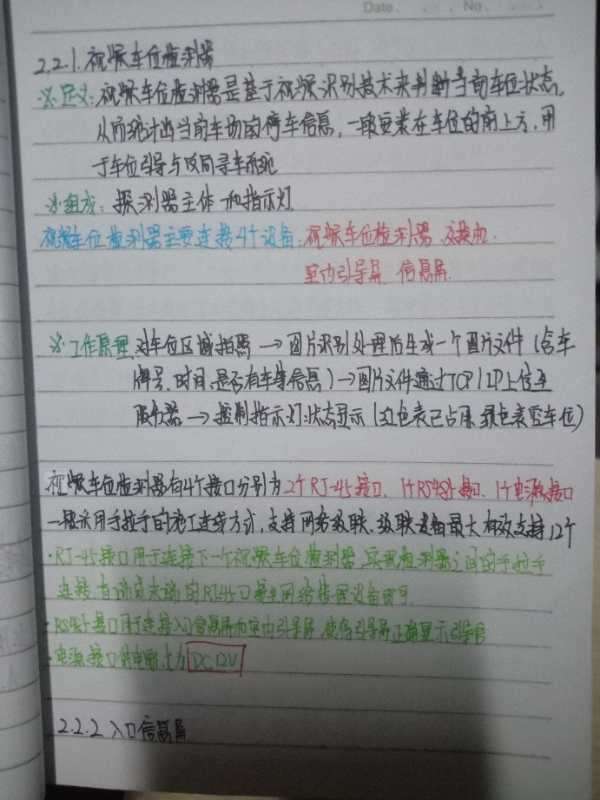 Date. No.
2.2.1. 视频车位检测器
※定义: 视频车位检测器是基于视频识别技术来判断当前车位状态,
从而统计出当前车场的停车信息, 一般安装在车位的前上方, 用
于车位引导与反向寻车系统
※组成: 探测器主体和指示灯
视频车位检测器主要连接4个设备: 视频车位检测器 交换机.
室内引导屏 信息屏.
※工作原理 对车位区域拍照 → 图片识别处理后生成一个图片文件 (含车
牌号、时间、是否有车等信息) → 图片文件通过TCP/IP上传至
服务器 → 控制指示灯状态显示 (红色表已占用 绿色表空车位)
视频车位检测器有4个接口分别为 2个RJ-45接口、1个RS485接口、1个电源接口
一般采用手拉手的施工连线方式, 支持网络级联, 级联设备最大有效支持12个
· RJ-45接口用于连接下一个视频车位检测器, 实现检测器之间的手拉手
连接, 末端的RJ45口接至网络管理设备即可.
· RS485接口用于连接入口信息屏和室内引导屏, 使得引导屏正确显示引导信
· 电源接口供电 为 DC12V
2.2.2 入口信息屏